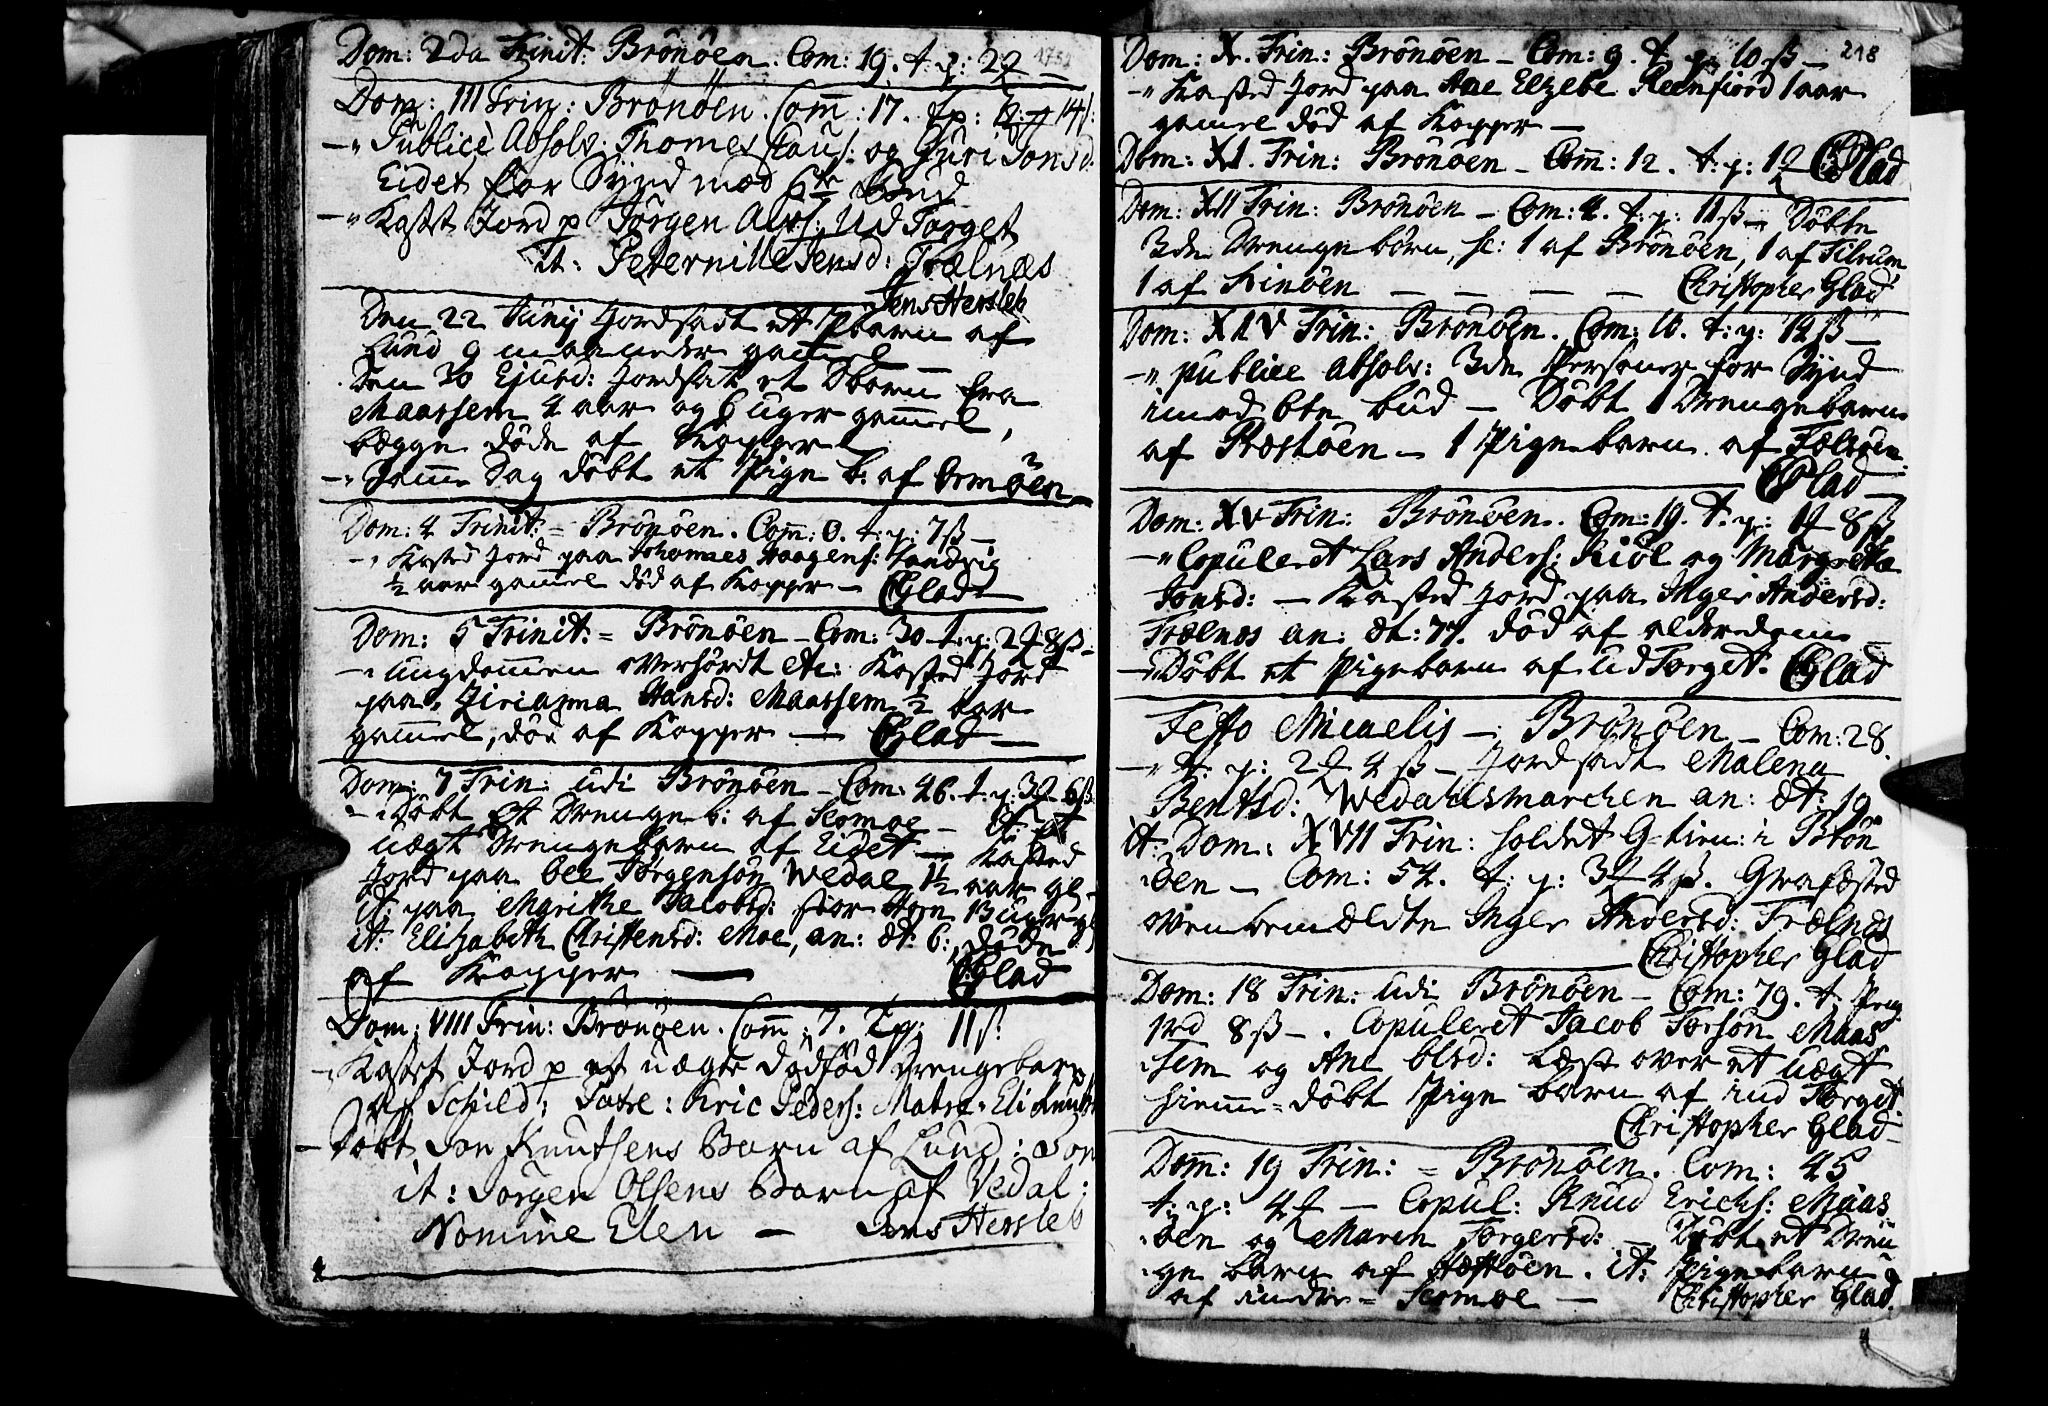 Dom: 2da Trinit: Brönöen. Com: 19. t. p: 22
Dom: III Trin: Brönöen. Com̄: 17. tp: 14
-" Publicè Absolv: Thomes og Guri Jonsd:
Eidet for Synd mod 6te bud
-" Kastet Jord p Jörgen Ud Torget
it: Peternille Jensd: Trælnæs
Jens Hersleb
Den 22 Junij Jordfæst et Pbarn af
Lund 9 maaneder gammel
Den 30 Ejusd: Jordfæst et Dbarn fra
Maarsem 4 aar og 6 uger gam̄el,
begge döde af Kopper
-" Samme Dag döbt et Pige b: af Ormöen
Dom: 4 Trinit: = Brönöen. Com̄: 0. t: p: 7ß -
-" Kasted Jord paa Johannes Haagens:
½ aar gam̄el död af Kopper - CGlad
Dom: 5 Trinit: = Brönöen - Com: 30 t: p: 2 8ß -
-" Ungdommen overhördt etc: Kasted Jord
paa Hansd: Maarsem ½ aar
gam̄el, död af Kopper - CGlad -
Dom: 7 Trin: udi Brönöen - Com: 46. t: p: 3 6ß
-" Döbt et Drenge b: af - it: et
uægt Drengebarn af Eidet - Kasted
Jord paa Ole Jörgensön Wedal 1½ aar gl -
it: paa Mgrithe Jacobsd: Horn 13 uger gl
it: Elisabeth Christensd: Moe, an: æt: 6: döde
af Kopper - CGlad
Dom: VIII Trin: Brönöen. Com̄: 7. Tp: 11ß
-" Kastet Jord p et uægte dödföd Drengebarn
af Schild: Patre: Eric Peders: Matre: Eli
- Döbt Jon Knutsens Barn af Lund: Jon
it: Jörgen Olsens Barn af Vedal:
Nomine Elen - Jens Hersleb
218
Dom: X. Trin: Brönöen - Com: 9. t. p: 10ß -
-" Kasted Jord paa Ane Elzebe Reenfiord 1 aar
gamel död af Kopper -
Dom: XI. Trin: Brönöen - Com̄: 12. t: p: CGlad
Dom: XII Trin: Brönöen - Com: 4. t: p: 11ß - Döbte
3de Drenge börn, sc: 1 af Brönöen, 1 af Tilrum
1 af - - - - Christopher Glad
Dom: XIV Trin: Brönöen. Com: 10. t: p: 12ß -
-" publice absolv: 3de Personer for Synd
imod 6te bud - Döbt 1 Drengebarn
af - 1 Pigebarn af
CGlad
Dom: XV Trin: Brönöen. Com: 19. t: p: 1 8ß
-" Copuleret Lars Anders: Kiöl og Margreta
Jonsd: - Kasted Jord paa Inger Andersd:
Trælnes an: æt: 77. död af alderdom -
-" Döbt et Pigebarn af UdTorget: CGlad
Festo Micaelis - Brönöen - Com: 28.
-" t: p: 2 4ß - Jordfæst Malena
Bentsd: Wedahlsmarchen an: æt: 19
it: Dom: XVII Trin: holdet G-tien: i Brön
öen - Com: 54. t: p: 3 4ß. Grafæsted
ovenbemældte Inger Andersd: Trælnes
Christopher Glad
Dom: 18 Trin: udi Brönöen - Com: 79. t. Peng
1rd 8ß -. Copuleret Jacob Torsön Maar
sem og Ane Olsd: Læst over et uægt
hiemme=döbt Pige barn af ind Torget
Christopher Glad
Dom̄: 19 Trin: = Brönöen. Com: 45
t: p: 4 - Copul: Knud Erichs: Maas
öen og Maren Torgersd: - Döbt et Dren
ge barn af Hestöen. it: Pigebarn
af indre= - Christopher Glad